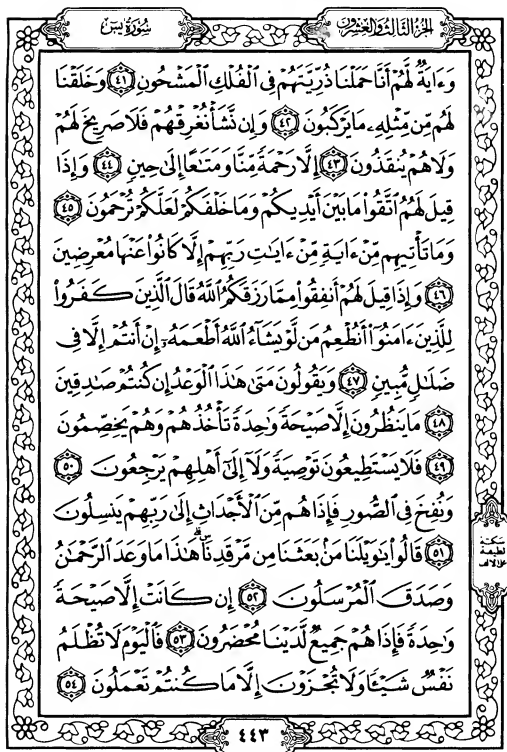 سُورَةُ يسٓ
الجُزْءُ الثَّالِثُ وَالعِشْرُونَ
وَءَايَةٌ لَّهُمْ أَنَّا حَمَلْنَا ذُرِّيَّتَهُمْ فِي ٱلْفُلْكِ ٱلْمَشْحُونِ ٤١ وَخَلَقْنَا
لَهُم مِّن مِّثْلِهِۦ مَا يَرْكَبُونَ ٤٢ وَإِن نَّشَأْ نُغْرِقْهُمْ فَلَا صَرِيخَ لَهُمْ
وَلَا هُمْ يُنقَذُونَ ٤٣ إِلَّا رَحْمَةً مِّنَّا وَمَتَٰعًا إِلَىٰ حِينٍ ٤٤ وَإِذَا
قِيلَ لَهُمُ ٱتَّقُوا۟ مَا بَيْنَ أَيْدِيكُمْ وَمَا خَلْفَكُمْ لَعَلَّكُمْ تُرْحَمُونَ ٤٥
وَمَا تَأْتِيهِم مِّنْ ءَايَةٍ مِّنْ ءَايَٰتِ رَبِّهِمْ إِلَّا كَانُوا۟ عَنْهَا مُعْرِضِينَ
٤٦ وَإِذَا قِيلَ لَهُمْ أَنفِقُوا۟ مِمَّا رَزَقَكُمُ ٱللَّهُ قَالَ ٱلَّذِينَ كَفَرُوا۟
لِلَّذِينَ ءَامَنُوٓا۟ أَنُطْعِمُ مَن لَّوْ يَشَآءُ ٱللَّهُ أَطْعَمَهُۥٓ إِنْ أَنتُمْ إِلَّا فِي
ضَلَٰلٍ مُّبِينٍ ٤٧ وَيَقُولُونَ مَتَىٰ هَٰذَا ٱلْوَعْدُ إِن كُنتُمْ صَٰدِقِينَ
٤٨ مَا يَنظُرُونَ إِلَّا صَيْحَةً وَٰحِدَةً تَأْخُذُهُمْ وَهُمْ يَخِصِّمُونَ
٤٩ فَلَا يَسْتَطِيعُونَ تَوْصِيَةً وَلَآ إِلَىٰٓ أَهْلِهِمْ يَرْجِعُونَ ٥٠
وَنُفِخَ فِي ٱلصُّورِ فَإِذَا هُم مِّنَ ٱلْأَجْدَاثِ إِلَىٰ رَبِّهِمْ يَنسِلُونَ
٥١ قَالُوا۟ يَٰوَيْلَنَا مَنۢ بَعَثَنَا مِن مَّرْقَدِنَا ۗ هَٰذَا مَا وَعَدَ ٱلرَّحْمَٰنُ
وَصَدَقَ ٱلْمُرْسَلُونَ ٥٢ إِن كَانَتْ إِلَّا صَيْحَةً
وَٰحِدَةً فَإِذَا هُمْ جَمِيعٌ لَّدَيْنَا مُحْضَرُونَ ٥٣ فَٱلْيَوْمَ لَا تُظْلَمُ
نَفْسٌ شَيْـًٔا وَلَا تُجْزَوْنَ إِلَّا مَا كُنتُمْ تَعْمَلُونَ ٥٤
سكتة
لطيفة
على الالف
٤٤٣